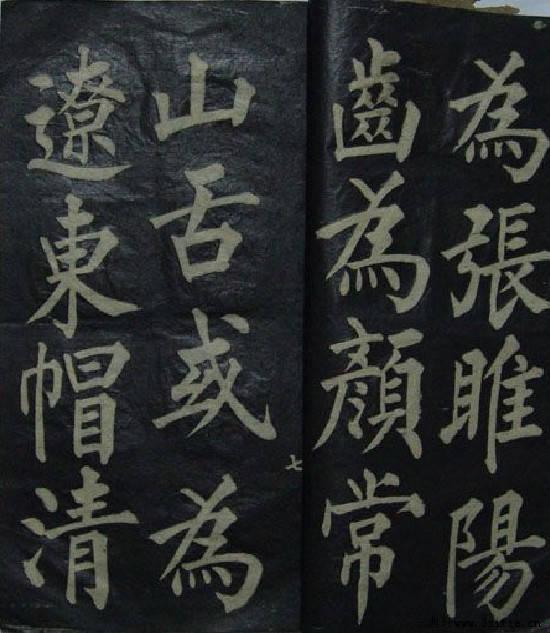 為張睢陽
齒為顏常
山舌或為
遼東帽清
七